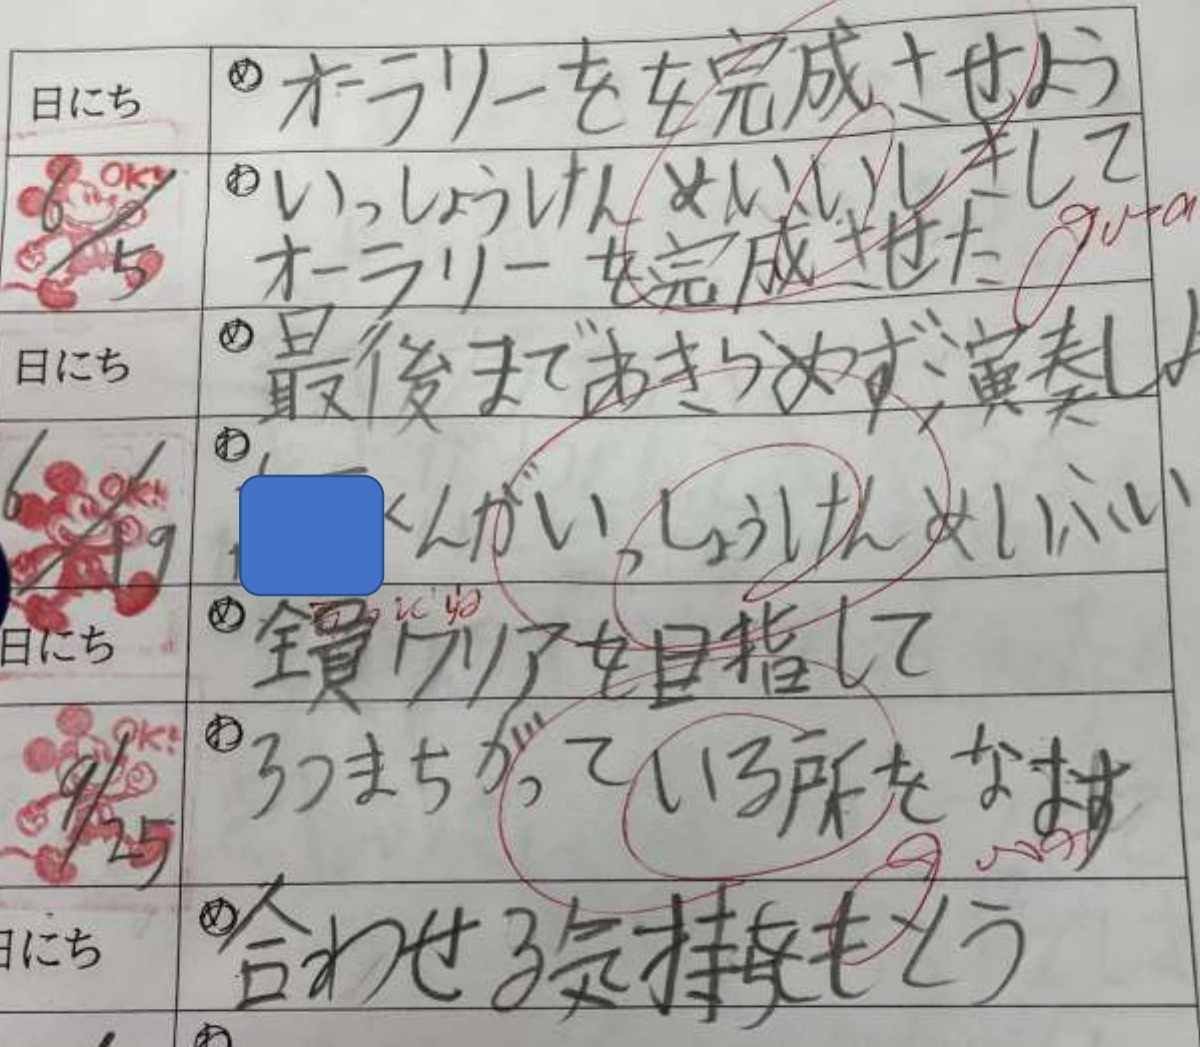 日にち
め オーラリーをを完成させよう
6/5
OK!
わ いっしょうけんめいいしきして
オーラリーを完成させた
日にち
め 最後まであきらめず、演奏しよ
6/19
OK!
わ くんがいっしょうけんめい
日にち
め 全員クリアを目指して
9/25
OK!
わ 3つまちがっている所をなおす
日にち
め 合わせる気持ちをもとう
わ